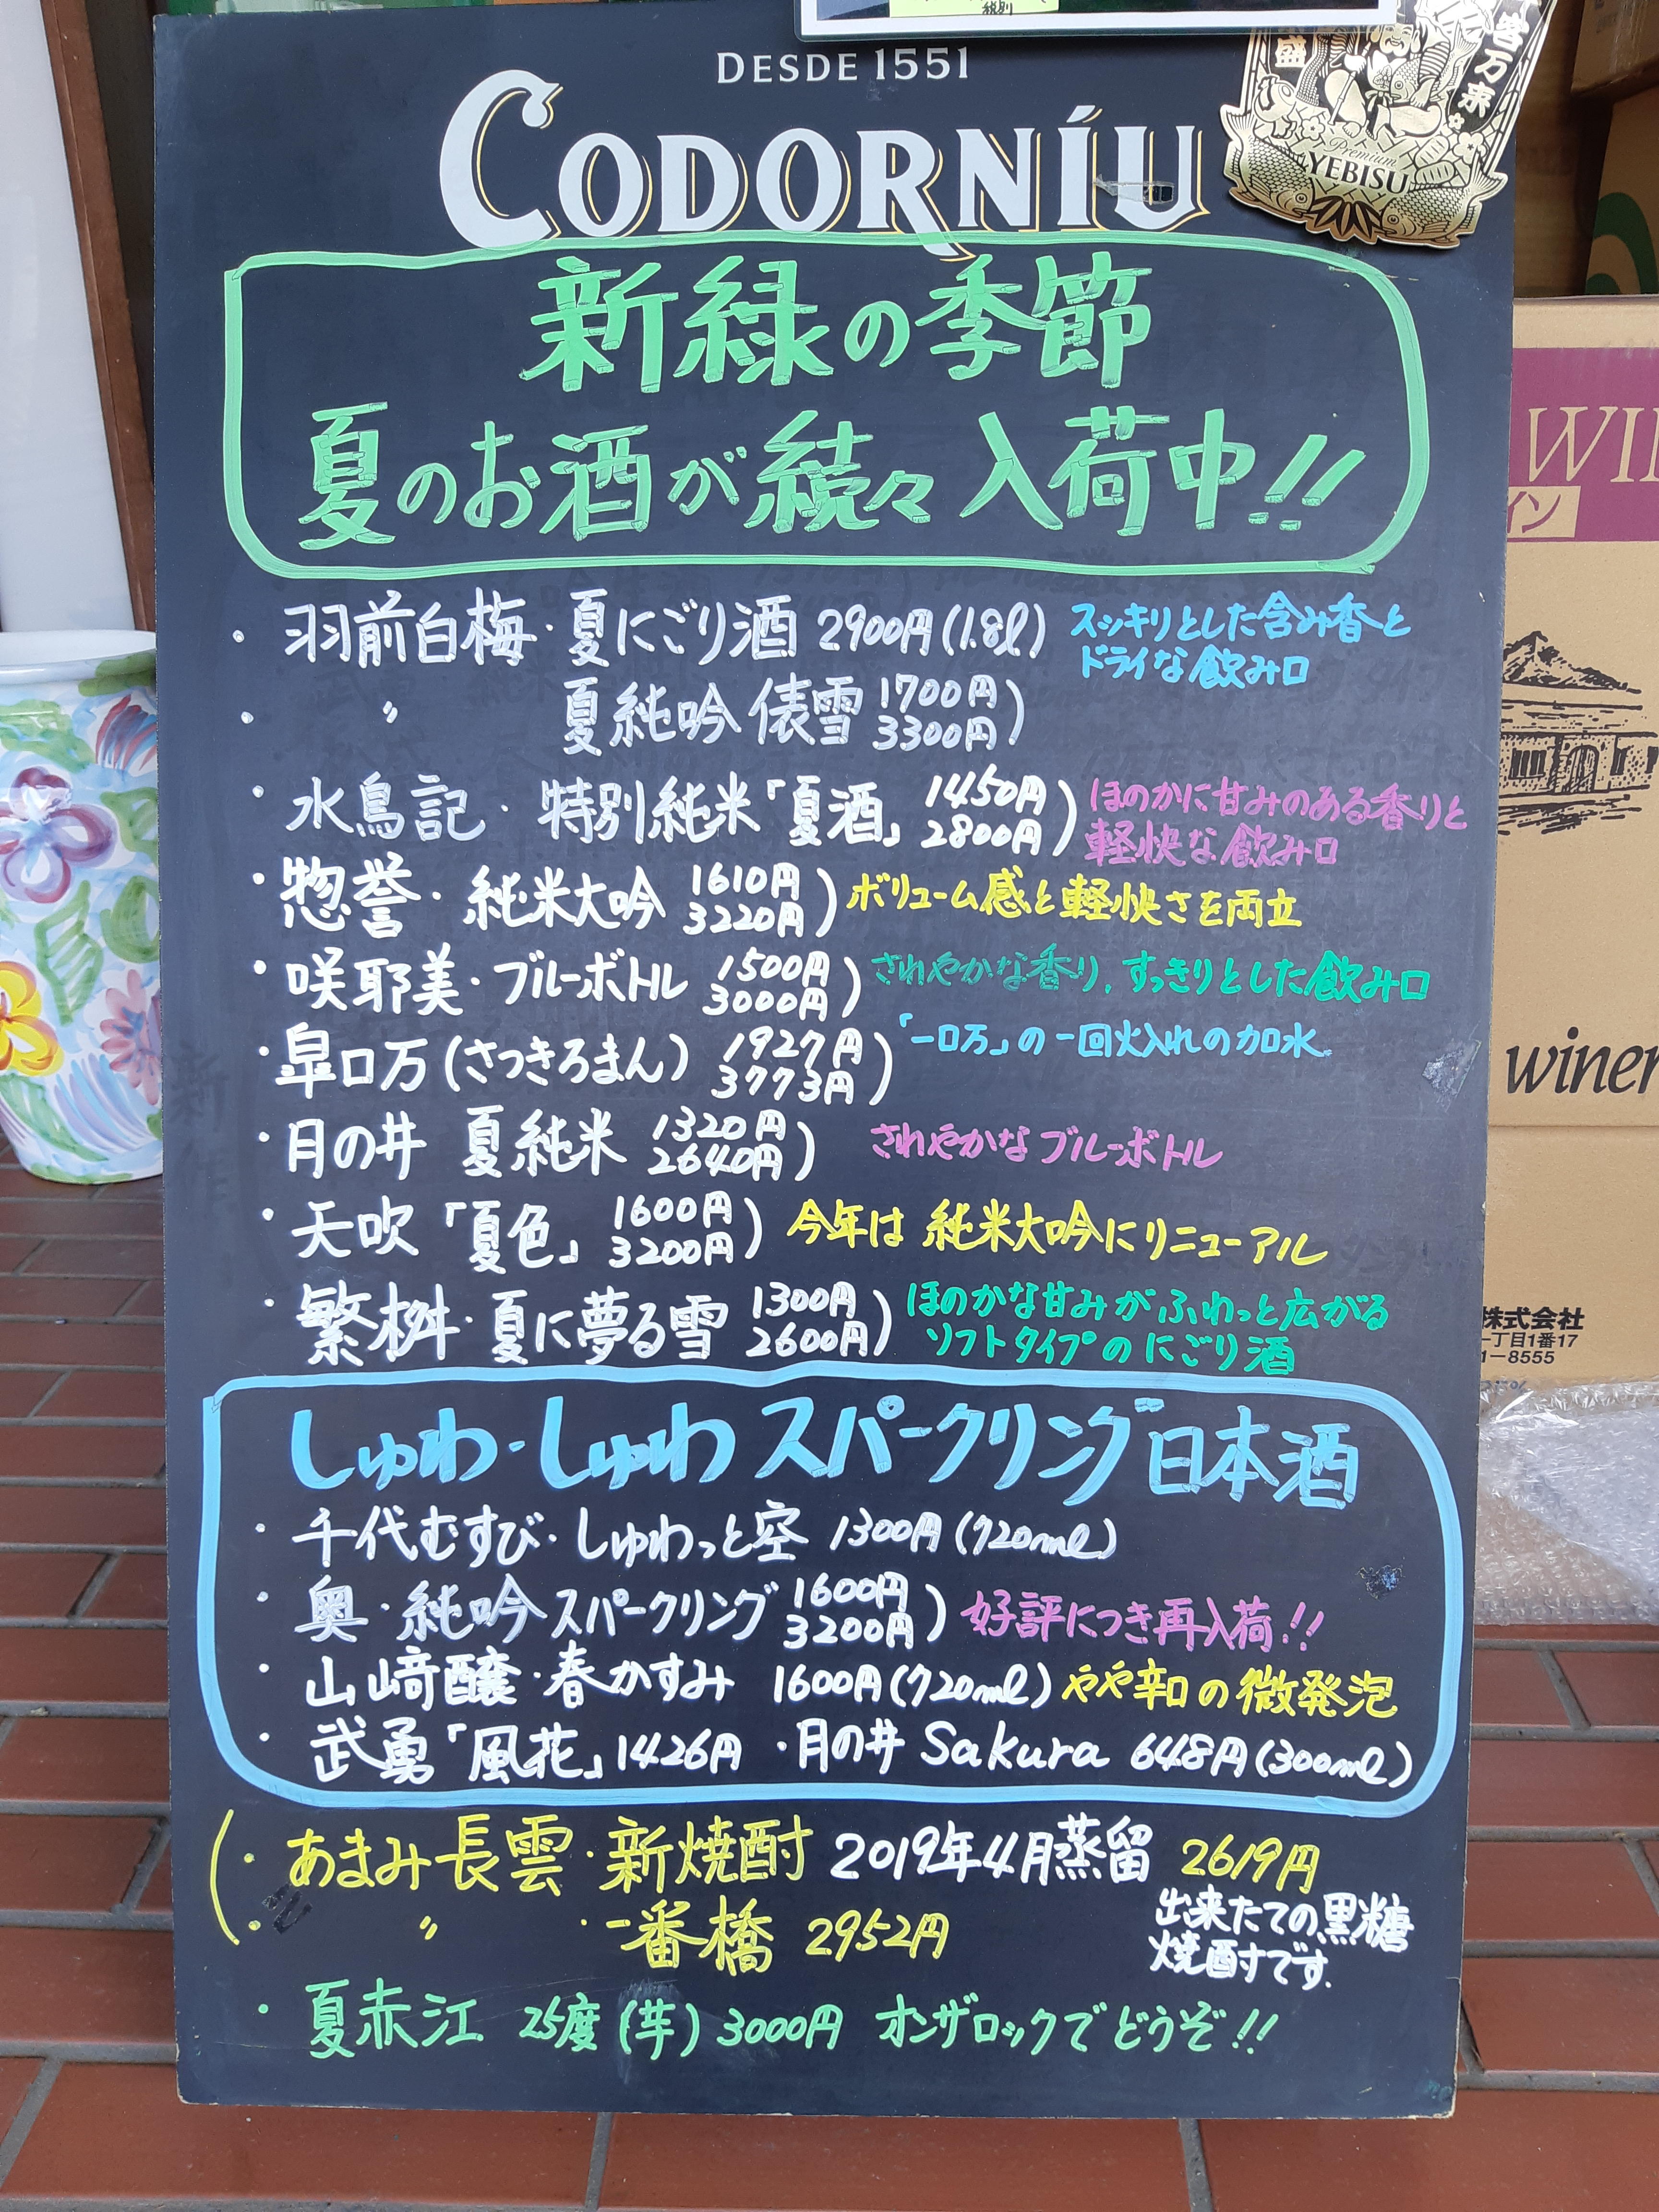 税別
DESDE 1551
CODORNÍU
Premium
YEBISU
新緑の季節
夏のお酒が続々入荷中!!
・羽前白梅・夏にごり酒 2900円(1.8ℓ) スッキリとした含み香と
ドライな飲み口
・〃 夏純吟 俵雪 1700円
3300円)
・水鳥記・特別純米「夏酒」 1450円
2800円) ほのかに甘みのある香りと
軽快な飲み口
・惣誉・純米大吟 1610円
3220円) ボリューム感と軽快さを両立
・咲耶美・ブルーボトル 1500円
3000円) さわやかな香り,すっきりとした飲み口
・皐口万(さつきろまん) 1927円
3773円) 「一口万」の一回火入れの加水。
・月の井 夏純米 1320円
2640円) さわやかなブルーボトル
・天吹「夏色」 1600円
3200円) 今年は純米大吟にリニューアル
・繁桝・夏に夢る雪 1300円
2600円) ほのかな甘みがふわっと広がる
ソフトタイプのにごり酒
しゅわ・しゅわスパークリング日本酒
・千代むすび・しゅわっと空 1300円(720ml)
・奥・純吟スパークリング 1600円
3200円) 好評につき再入荷!!
・山﨑醸・春かすみ 1600円(720ml) やや辛口の微発泡
・武勇「風花」1426円 ・月の井 Sakura 648円(300ml)
・あまみ長雲・新焼酎 2019年4月蒸留 2619円
・〃 ・一番橋 2952円
出来たての黒糖
焼酎です.
・夏赤江 25度(芋) 3000円 オンザロックでどうぞ!!
WI
イン
winer
株式会社
一丁目1番17
1-8555